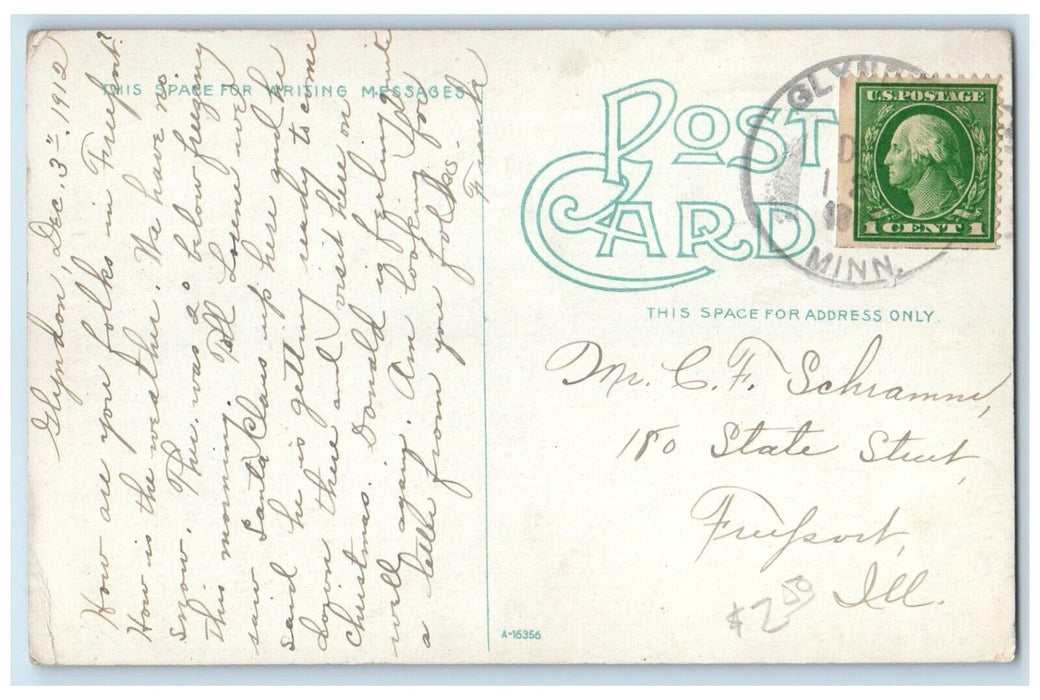 THIS SPACE FOR WRITING MESSAGES
Glyndon, Dec. 3" 1912
How are you folks in Freeport?
How is the weather. We have no
snow. Ther. was 2° below freezing
this morning. Tell Lorene we
saw Santa Claus up here and he
said he is getting ready to come
down there and visit here on
Christmas. Donald is feeling quite
well again. Am looking for
a letter from you folks.
Frank
POST
CARD
THIS SPACE FOR ADDRESS ONLY.
GLYN
D
MINN.
U.S. POSTAGE
1 CENT 1
Mr. C. F. Schramm,
180 State Street
Freeport,
Ill.
$2.50
A-16356